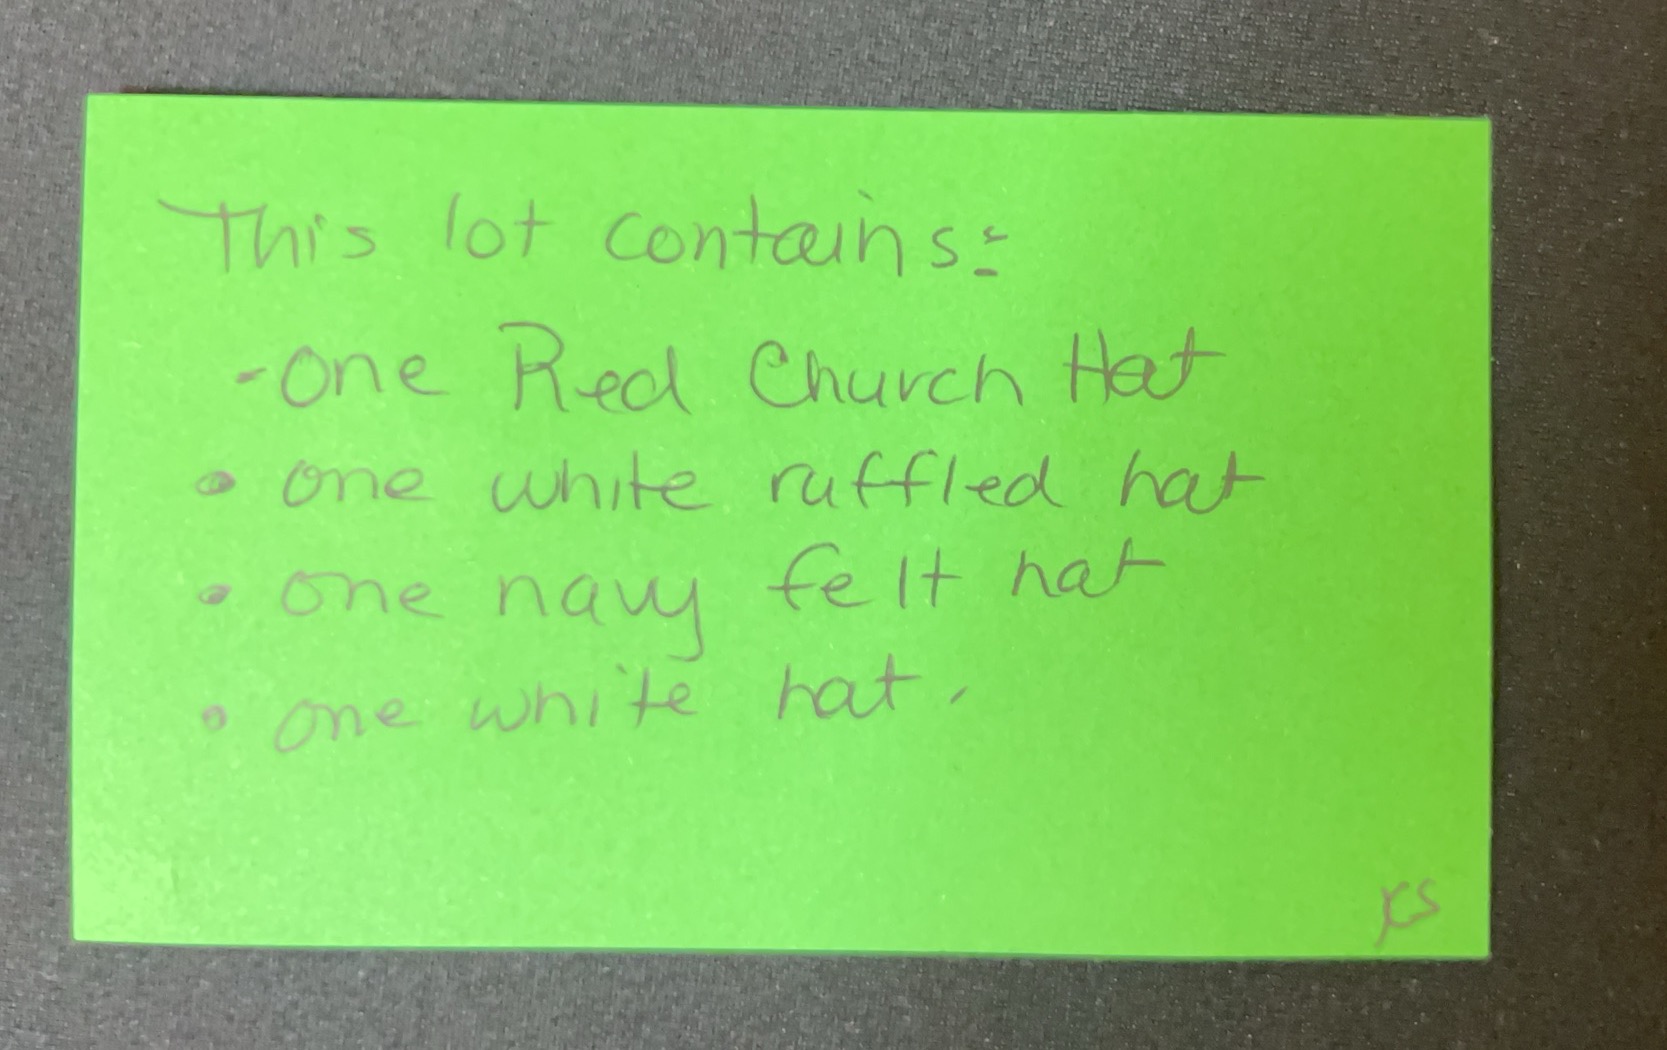 This lot contains:
- one Red Church Hat
• one white ruffled hat
• one navy felt hat
• one white hat.
KS